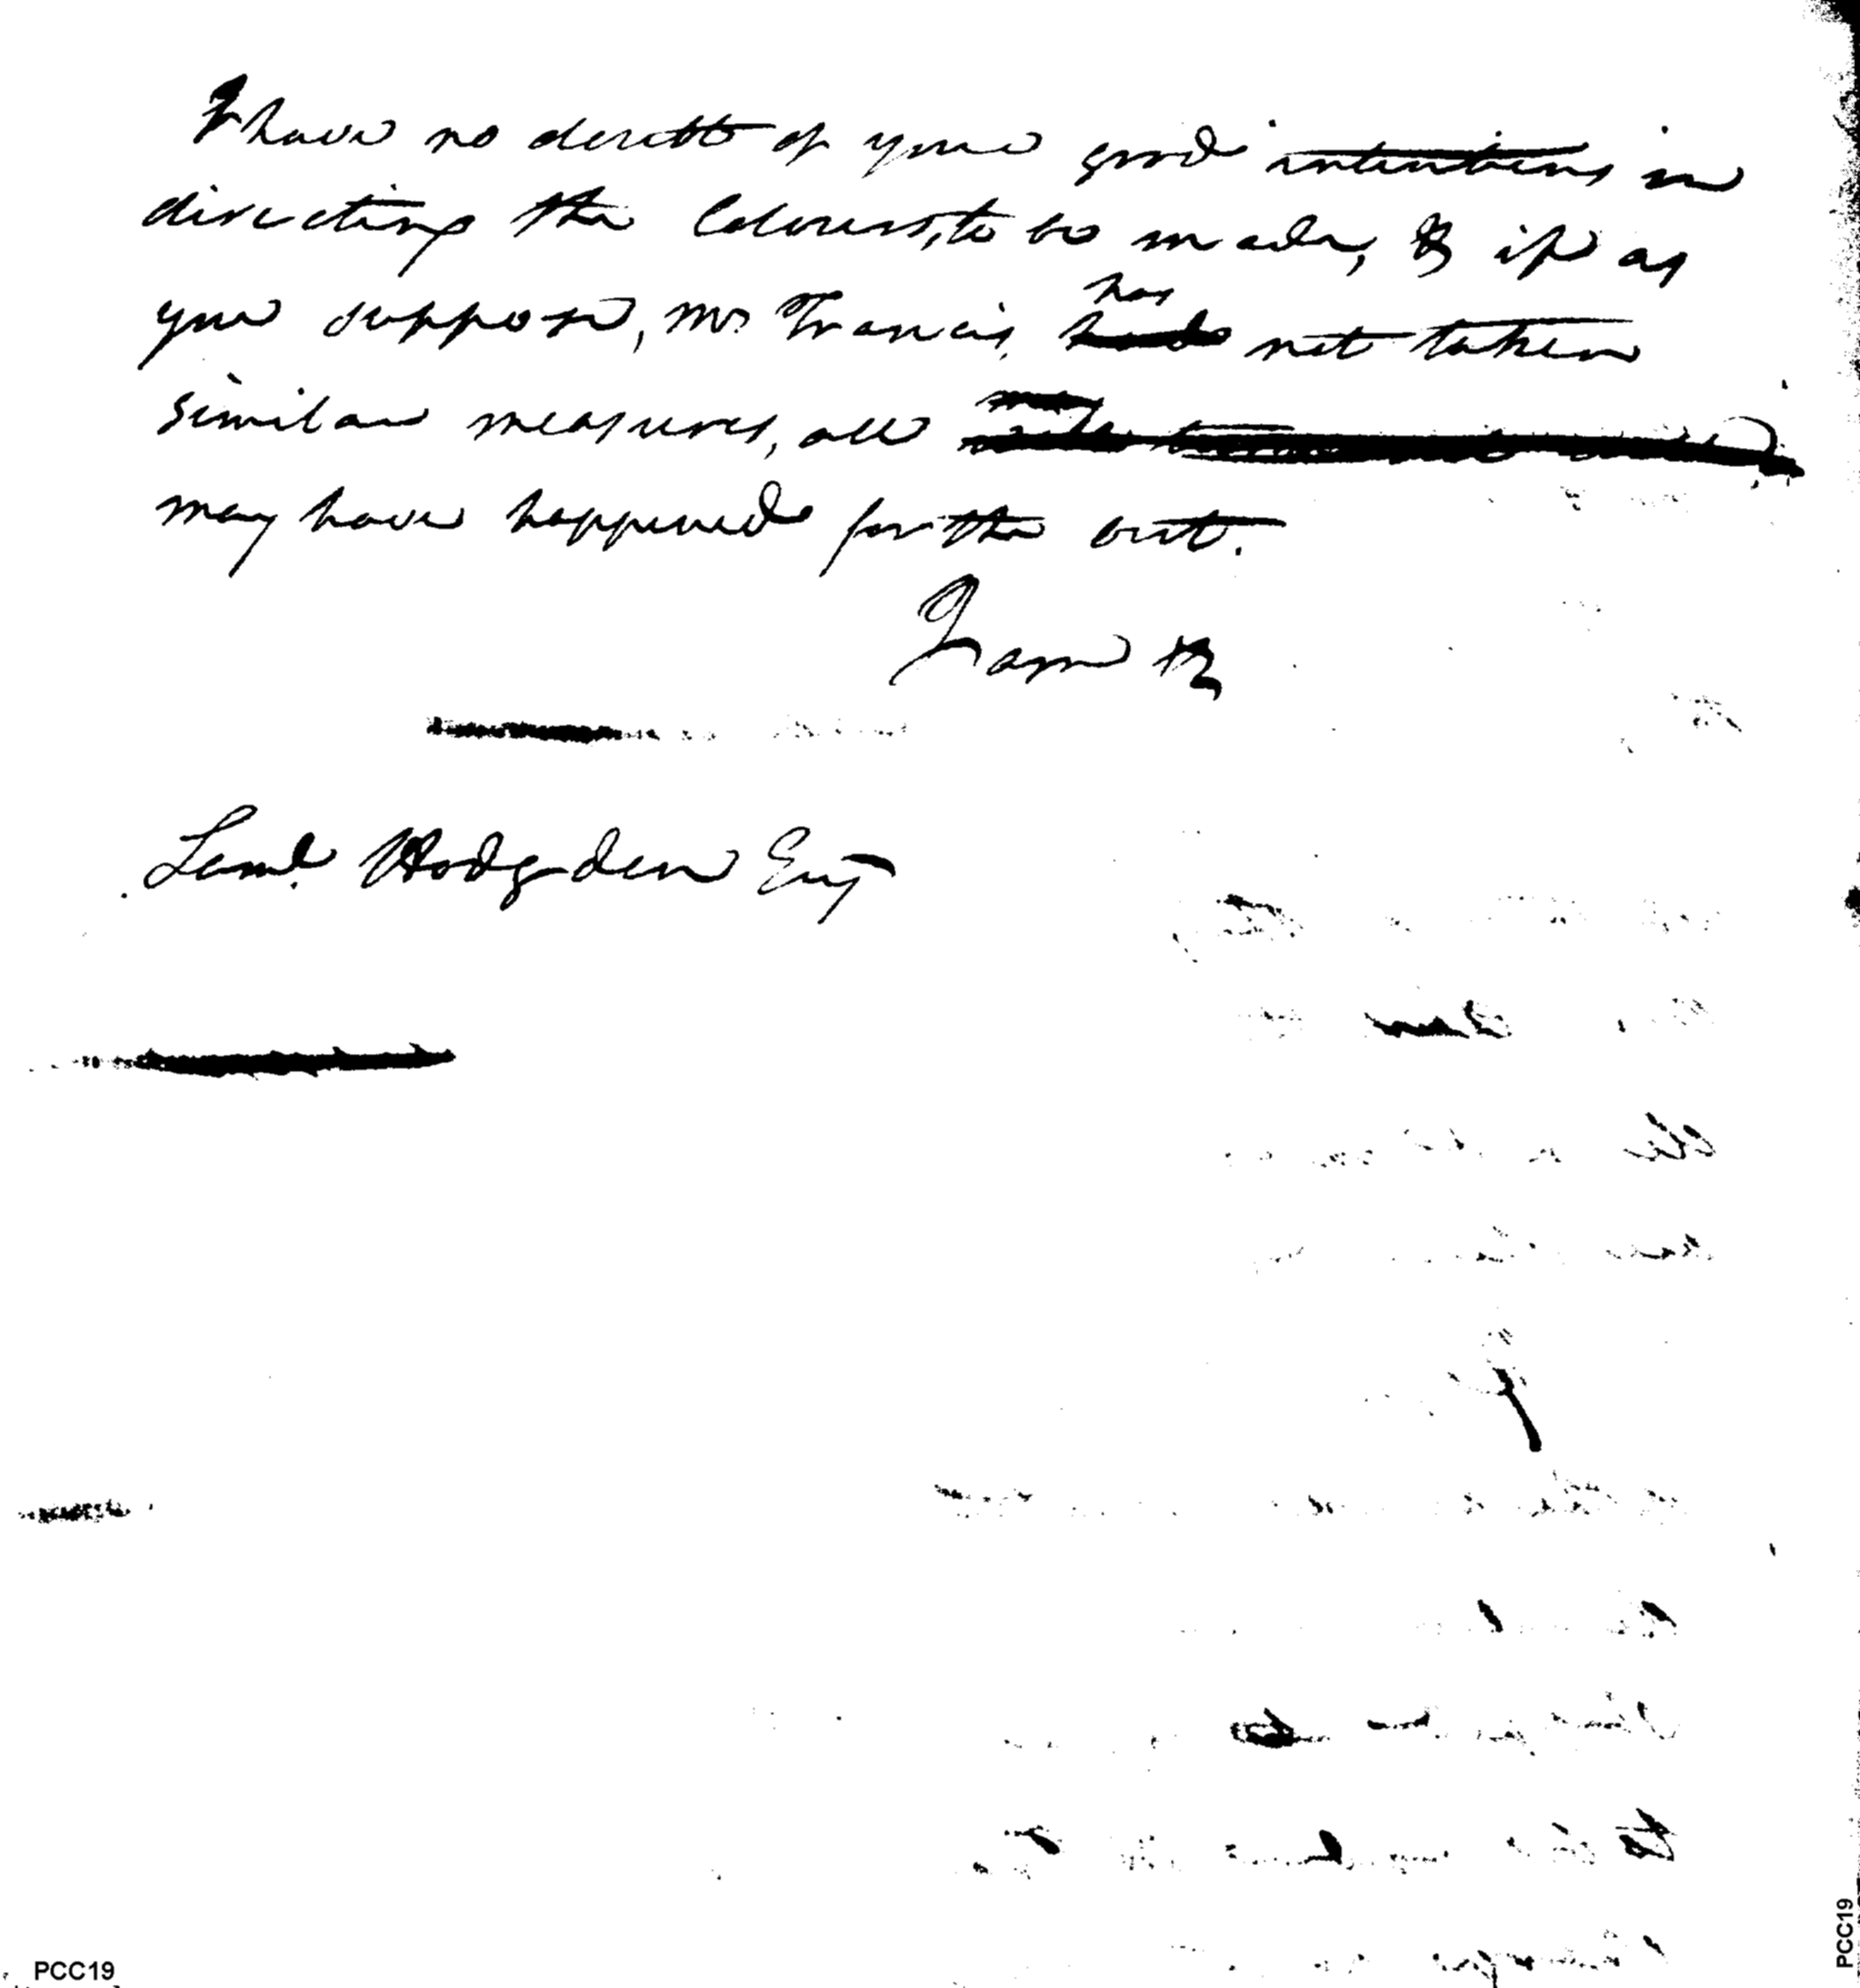 I have no doubt of your good intentions in
directing the Colours, to be made, & if as
you suppose, Mr. Francis has not taken
similar measures, all
may have happened for the best.
I am &
Saml. Hodgdon Esq
PCC19
PCC19